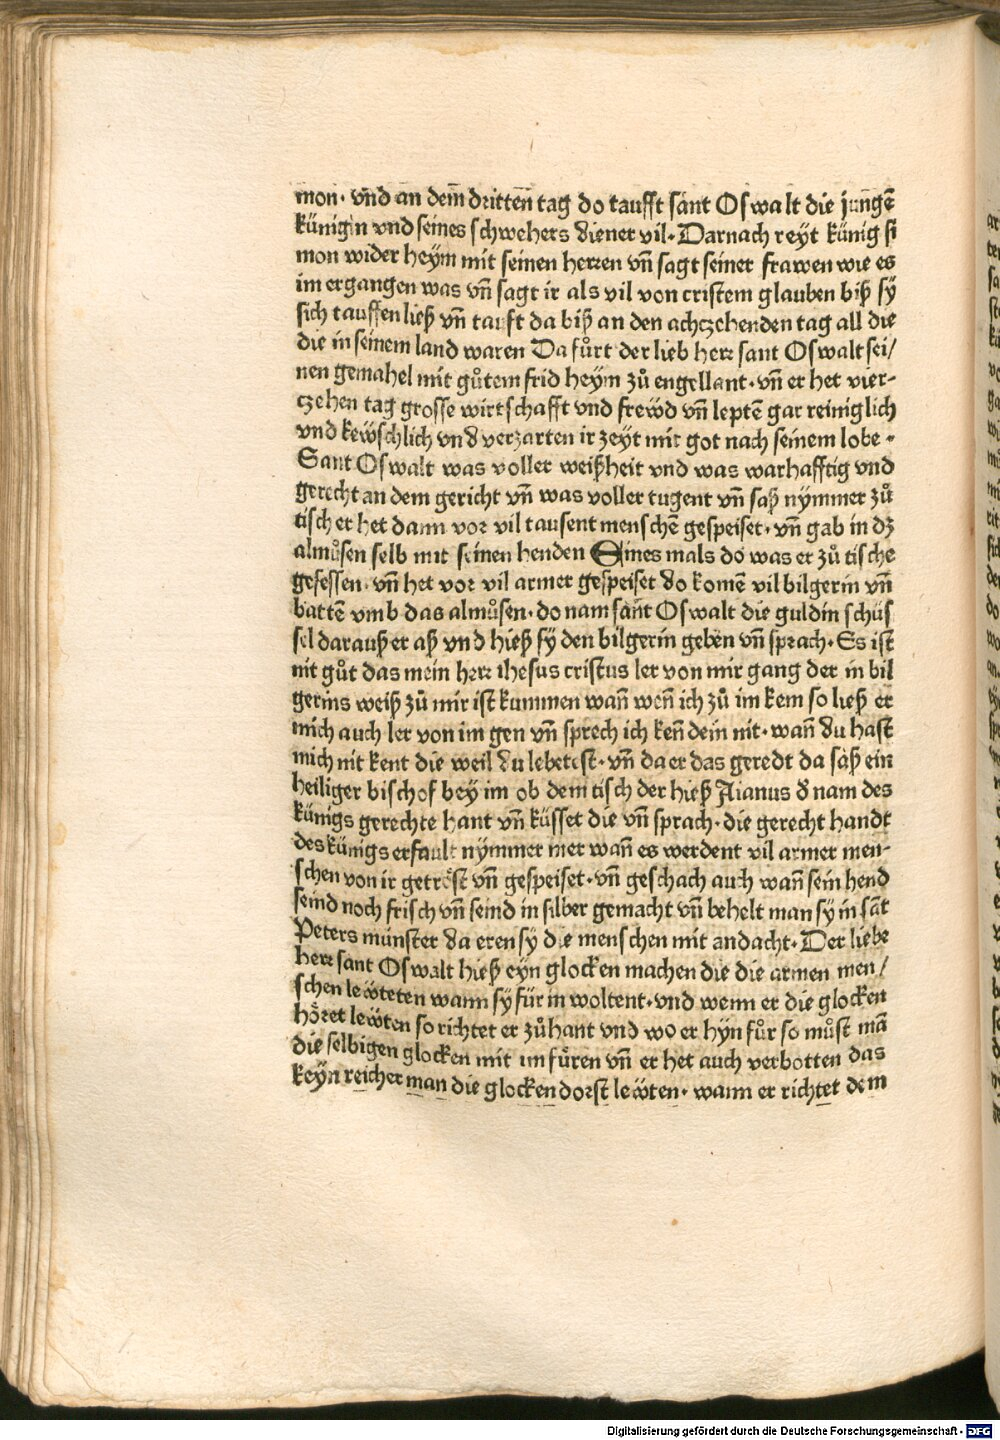 mon· vnd an dem̄ dritten tag do taufft sant Oswalt die jungē
künigin vnd seines schwehers diener vil· Darnach reyt künig si
mon wider heym mit seinen herren vn̄ sagt seiner frawen wie es
im ergangen was vn̄ sagt ir als vil von cristem glauben biß sy
sich tauffen ließ vn̄ tauft da biß an den achczehenden tag all die
die in seinem land waren Da fůrt der lieb herr sant Oswalt sei/
nen gemahel mit gůtem frid heym zů engellant· vn̄ er het vier-
czehen tag grosse wirtschafft vnd frewd vn̄ leptē gar reiniglich
vnd kewschlich vnd verzarten ir zeyt mit got nach seinem lobe·
Sant Oswalt was voller weißheit vnd was warhafftig vnd
gerecht an dem gericht vn̄ was voller tugent vn̄ saß nymmer zů
tisch er het dann vor vil tausent menschē gespeiset· vn̄ gab in dz
almůsen selb mit seinen henden Eines mals do was er zů tische
gesessen· vn̄ het vor vil armer gespeiset do komē vil bilgerin vn̄
battē vmb das almůsen· do nam sant Oswalt die guldin schüs
sel darauß er aß vnd hieß sy den bilgerin geben vn̄ sprach· Es ist
nit gůt das mein herr ihesus cristus ler von mir gang der in bil
gerins weiß zů mir ist kummen wan̄ wen̄ ich zů im kem so ließ er
mich auch ler von im gen vn̄ sprech ich ken̄ dein nit· wan̄ du hast
mich nit kent die weil du lebetest· vn̄ da er das geredt da saß ein
heiliger bischof bey im ob dem tisch der hieß Aianus d nam des
künigs gerechte hant vn̄ küsset die vn̄ sprach· die gerecht handt
des künigs erfault nymmer mer wan̄ es werdent vil armer men-
schen von ir getröst vn̄ gespeiset· vn̄ geschach auch wan̄ sein hend
seind noch frisch vn̄ seind in silber gemacht vn̄ behelt man sy in sāt
Peters münster da eren sy die menschen mit andacht· Der liebe
herr sant Oswalt hieß eyn glocken machen die die armen men/
schen lewteten wann sy für in woltent· vnd wenn er die glocken
höret lewten so richtet er zůhant vnd wo er hyn fůr so můst mā
die selbigen glocken mit im füren vn̄ er het auch verbotten das
keyn reicher man die glocken dorst lewten· wann er richtet dem
Digitalisierung gefördert durch die Deutsche Forschungsgemeinschaft - DFG